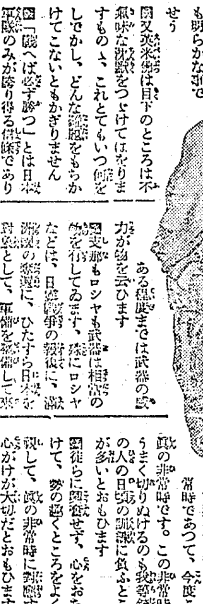 も明らかな事で
せう
又英米等は目下のところは不
氣味な沈默をつゞけてはをりま
すものゝ、これとてもいつ何を
しでかし、どんな難題をもちか
けてこないともかぎりません
「戰へば必ず勝つ」とは日本
軍隊のみが り得る信條であり
ある程度までは武器の威
力が物を云ひます
支那もロシヤも武器は相當の
物を有してゐます、殊にロシヤ
などは、日露戰爭の敗後に、滿
ひたすら日本を
對象として、軍備を整備して來
常時であつて、今度こ
眞の非常時です。この非常時
うまく切りぬけるのも我等
の人の日頃の訓練に負ふとこ
が多いとおもひます
徒らに興奮せず、心をおち
けて、勢の趨くところをよく
視して、眞の非常時に對應す
心がけが大切だとおもひます